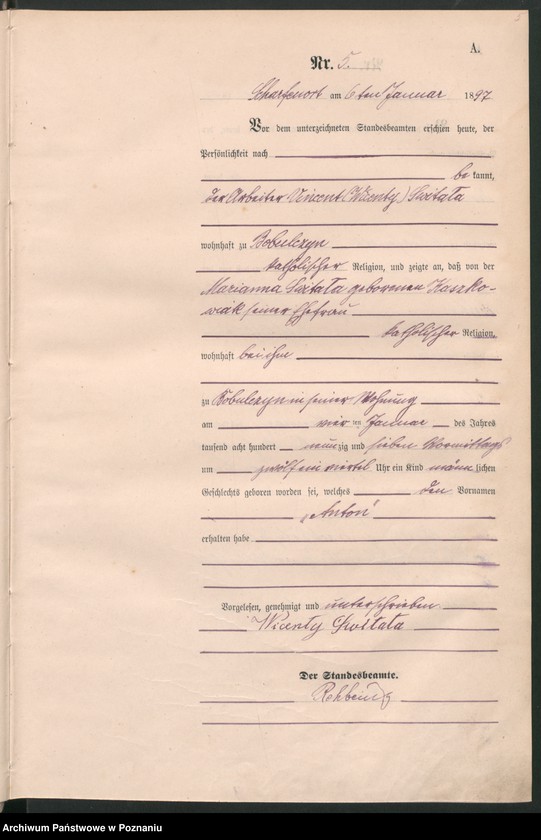 A.
Nr. 5.
Scharfenort am 6ten Januar 1897
Vor dem unterzeichneten Standesbeamten erschien heute, der
Persönlichkeit nach
be kannt,
der Arbeiter Vincent (Wicenty)
wohnhaft zu Bobulczyn
katholischer Religion, und zeigte an, daß von der
Marianna geborenen Kaszko-
wiak seiner Ehefrau
katholischer Religion,
wohnhaft bei ihm
zu Bobulczyn in seiner Wohnung
am vier ten Januar des Jahres
tausend acht hundert neunzig und sieben Vormittags
um zwölf ein viertel Uhr ein Kind männlichen
Geschlechts geboren worden sei, welches den Vornamen
„Anton“
erhalten habe
Vorgelesen, genehmigt und unterschrieben
Wicenty
Der Standesbeamte.
Rehbein
Archiwum Państwowe w Poznaniu